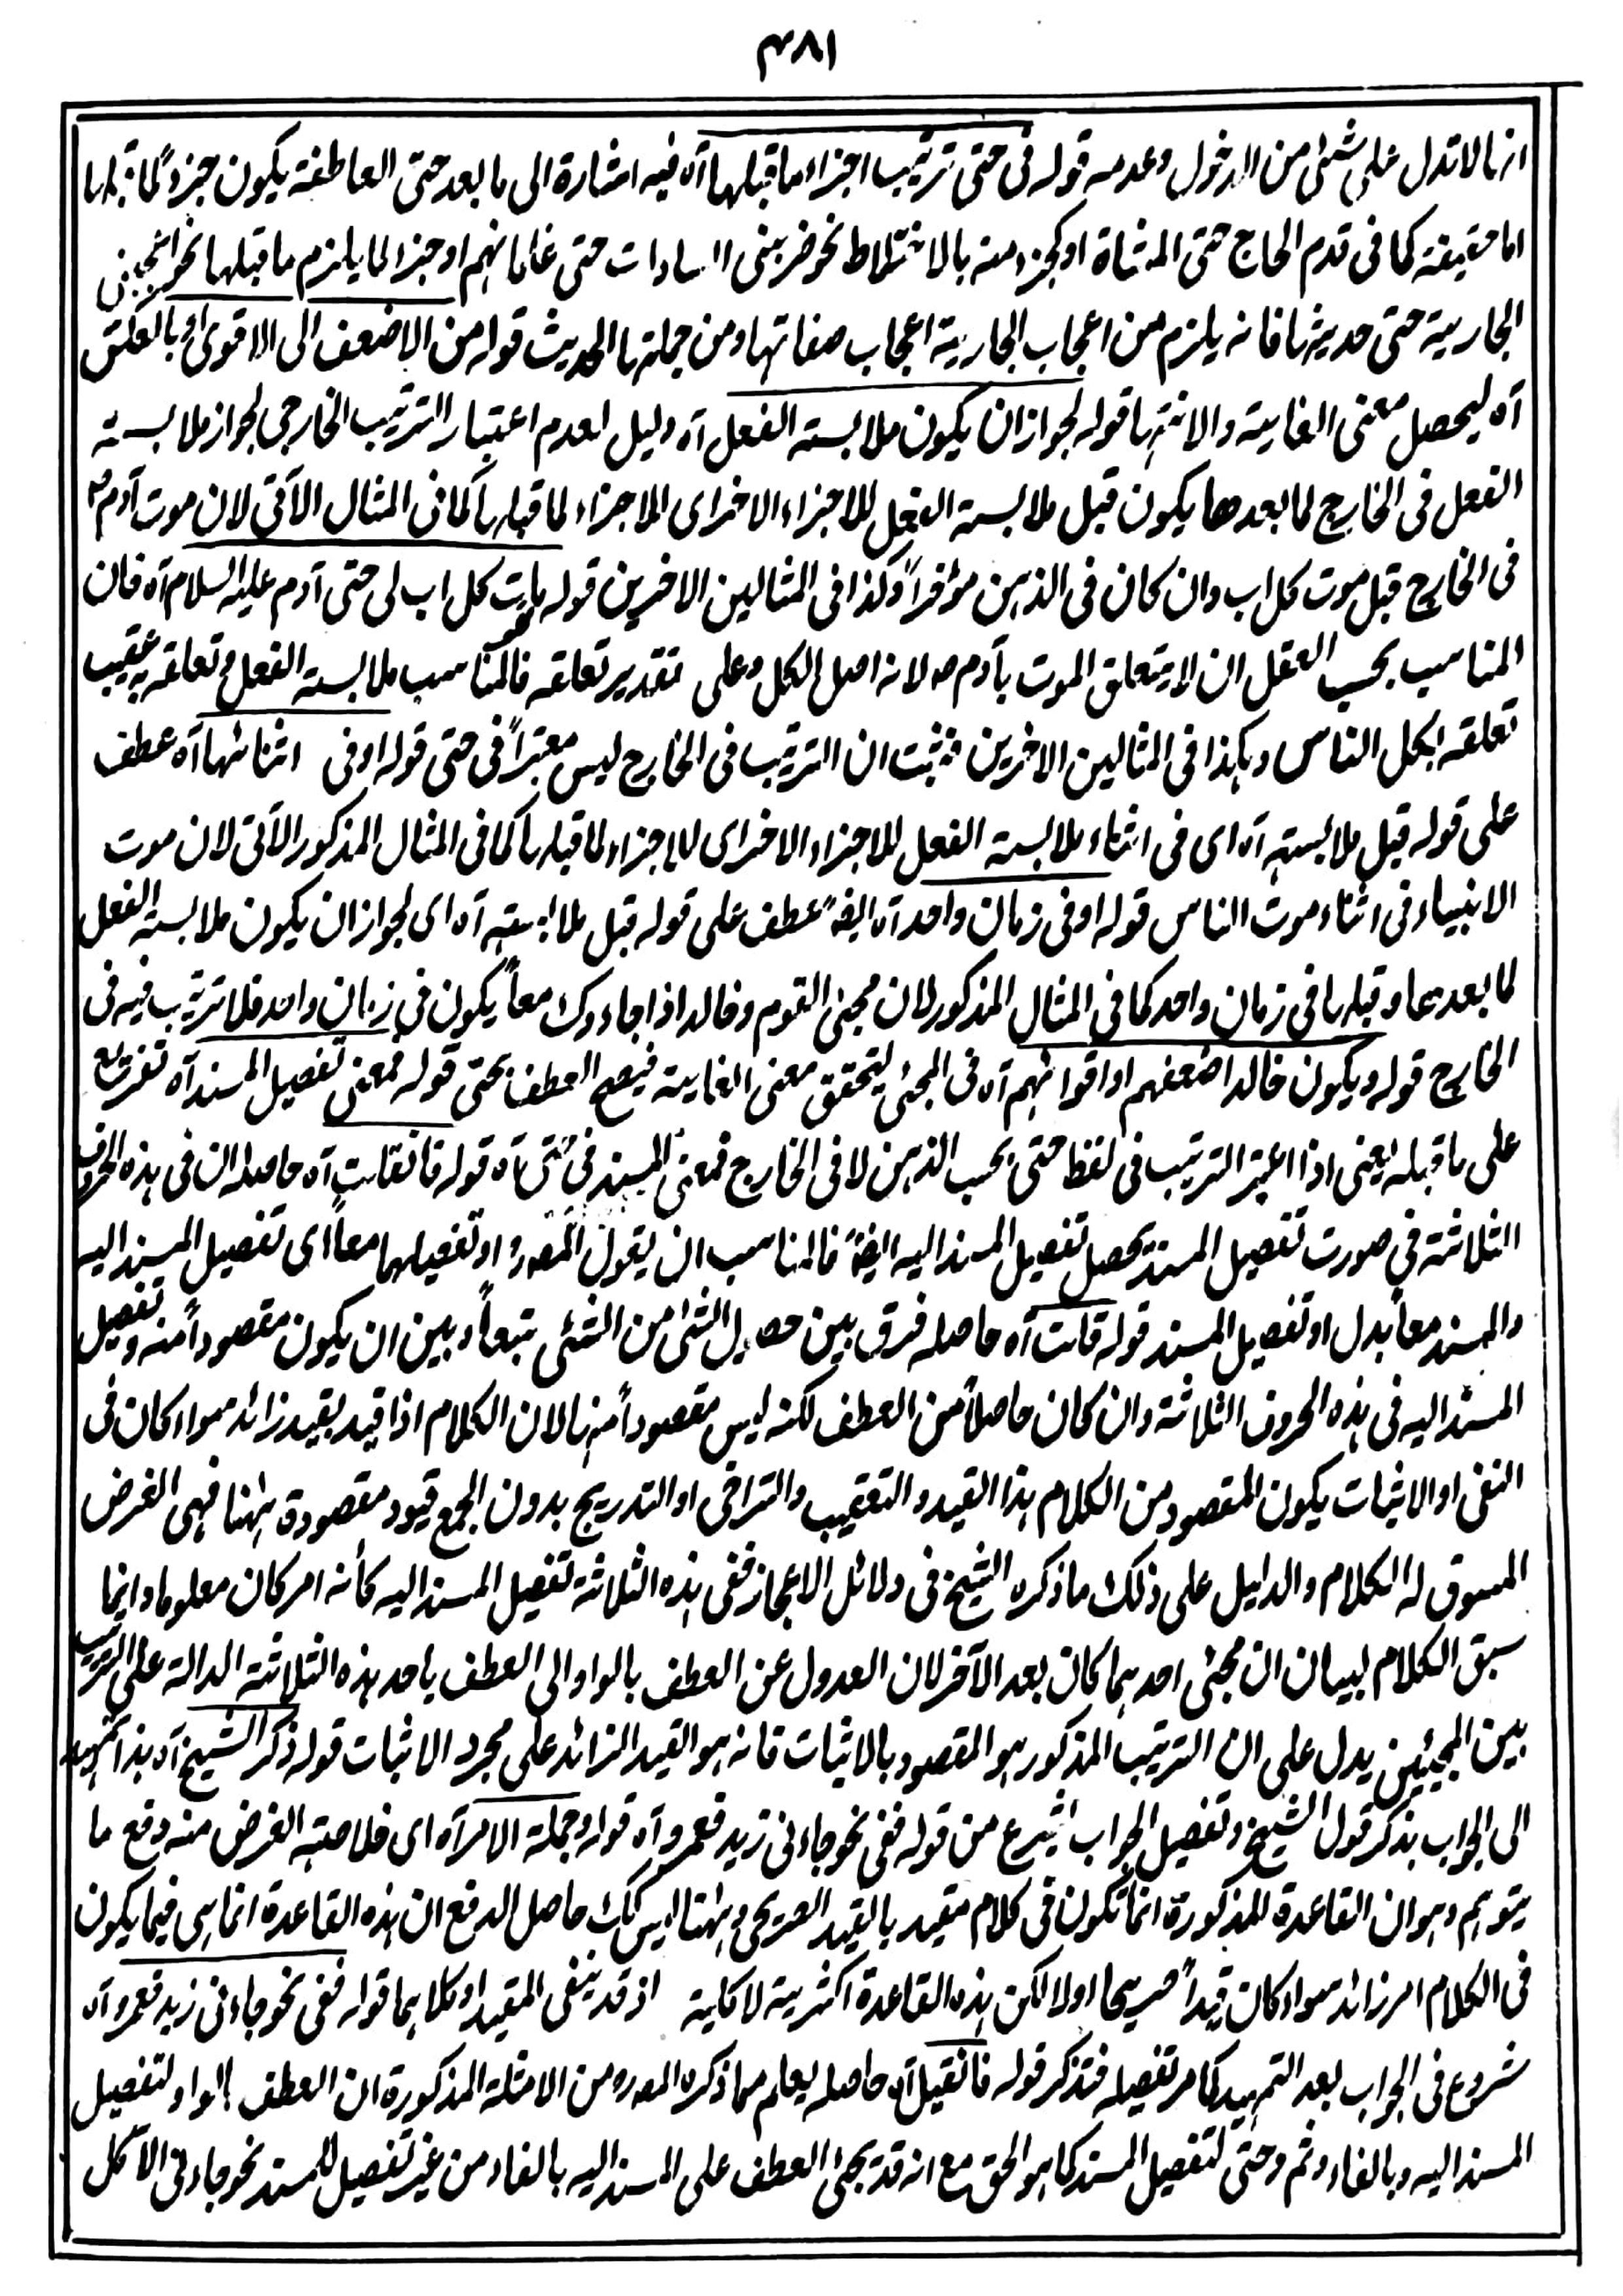 ٣٨١
انها لا تدل على شئ من الدخول وعدمه قوله فى حتى ترتيب اجزاء ما قبلها آه فيه اشارة الى ما بعد حتى العاطفة يكون جزءً لما قبلها
اما حقيقة كما فى قدم الحاج حتى المشاة او كجزء منه بالاختلاط نحو ضربنى السادات حتى غلمانهم او جزء لما يلزم ما قبلها نحو اعجبنى
الجارية حتى حديثها فانه يلزم من اعجاب الجارية اعجاب صفاتها ومن جملتها الحديث قوله من الاضعف الى الاقوى او بالعكس
آه ليحصل معنى الغاية والانتهاء قوله لجواز ان يكون ملابسة الفعل آه دليل لعدم اعتبار الترتيب الخارجى لجواز ملابسة
الفعل فى الخارج لما بعدها يكون قبل ملابسة الفعل للاجزاء الاخر اى الاجزاء لما قبلها كما فى المثال الآتى لان موت آدم ع
فى الخارج قبل موت كل اب وان كان فى الذهن مؤخراً وكذا فى المثالين الاخرين قوله مات كل اب لى حتى آدم عليه السلام آه فان
المناسب بحسب العقل ان لا يتعلق الموت بآدم ع لانه اصل الكل وعلى تقدير تعلقه فالمناسب ملابسة الفعل وتعلقه به عقيب
تعلقه بكل الناس وهكذا فى المثالين الاخرين فثبت ان الترتيب فى الخارج ليس معتبراً فى حتى قوله او فى اثنائها آه عطف
على قوله قبل ملابسته آه اى فى اثناء ملابسة الفعل للاجزاء الاخر اى للاجزاء لما قبلها كما فى المثال المذكور الآتى لان موت
الانبياء فى اثناء موت الناس قوله او فى زمان واحد آه ايضً عطف على قوله قبل ملابسته آه اى لجواز ان يكون ملابسة الفعل
لما بعدها وقبلها فى زمان واحد كما فى المثال المذكور لان مجئ القوم وخالد اذا جاءوك معاً يكون فى زمان واحد فلا ترتيب فيه فى
الخارج قوله ويكون خالد اضعفهم او اقواهم آه فى المجئ ليتحقق معنى الغاية فيصح العطف بحتى قوله فمعنى تفصيل المسند آه تفريع
على ما قبله يعنى اذا اعتبر الترتيب فى لفظ حتى بحسب الذهن لا فى الخارج فمعنى المسند فى حتى آه قوله فانقلت آه حاصله ان فى هذه الحروف
الثلاثة فى صورت تفصيل المسند يحصل تفصيل المسند اليه ايضً فالمناسب ان يقول المصره او تفصيلهما معاً اى تفصيل المسند اليه
والمسند معاً بدل او تفصيل المسند قوله قلت آه حاصله فرق بين حصول الشئ من الشئ تبعاً وبين ان يكون مقصوداً منه وتفصيل
المسند اليه فى هذه الحروف الثلاثة وان كان حاصلاً من العطف لكنه ليس مقصوداً منها لان الكلام اذا قيد بقيد زائد سواء كان فى
النفى او الاثبات يكون المقصود من الكلام هذا القيد والتعقيب والتراخى او التدريج بدون الجمع قيود مقصودة ههنا فهى الغرض
المسوق له الكلام والدليل على ذلك ما ذكره الشيخ فى دلائل الاعجاز ففى هذه الثلاثة تفصيل المسند اليه كأنه امر كان معلوما وانما
سيق الكلام لبيان ان مجئ احدهما كان بعد الآخر لان العدول عن العطف بالواو الى العطف باحد هذه الثلاثة الدالة على الترتيب
بين المجيئين يدل على ان الترتيب المذكور هو المقصود بالاثبات فانه هو القيد الزائد على مجرد الاثبات قوله ذكر الشيخ آه هذا تمهيد
الى الجواب بذكر قول الشيخ وتفصيل الجواب شرع من قوله ففى نحو جاءنى زيد فعمرو آه قوله وجملة الامر آه اى خلاصة الغرض منه دفع ما
يتوهم وهو ان القاعدة المذكورة انما تكون فى كلام مقيد بالقيد الصريحى وههنا ليس كك حاصل الدفع ان هذه القاعدة انما هى فيما يكون
فى الكلام امر زائد سواء كان قيداً صريحا اولا لكن هذه القاعدة اكثرية لا كلية اذ قد ينفى المقيد او كلاهما قوله ففى نحو جاءنى زيد فعمرو آه
شروع فى الجواب بعد التمهيد كما مر تفصيله فتذكر قوله فانقيل آه حاصله يعلم مما ذكره المصره من الامثلة المذكورة ان العطف بالواو لتفصيل
المسند اليه وبالفاء وثم وحتى لتفصيل المسند كما هو الحق مع انه قد يجئ العطف على المسند اليه بالفاء من غير تفصيل للمسند نحو جاءنى الآكل